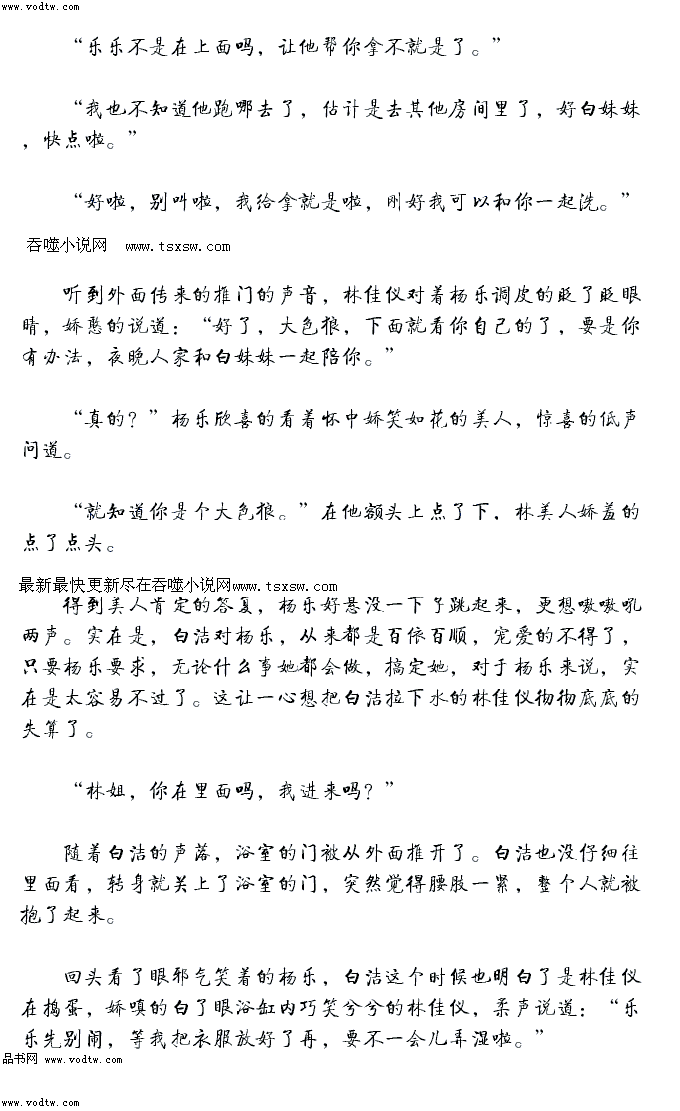 www.vodtw.com
“乐乐不是在上面吗，让他帮你拿不就是了。”
“我也不知道他跑哪去了，估计是去其他房间里了，好白妹妹
，快点啦。”
“好啦，别叫啦，我给拿就是啦，刚好我可以和你一起洗。”
吞噬小说网 www.tsxsw.com
听到外面传来的推门的声音，林佳仪对着杨乐调皮的眨了眨眼
睛，娇憨的说道：“好了，大色狼，下面就看你自己的了，要是你
有办法，夜晚人家和白妹妹一起陪你。”
“真的？”杨乐欣喜的看着怀中娇笑如花的美人，惊喜的低声
问道。
“就知道你是个大色狼。”在他额头上点了下，林美人娇羞的
点了点头。
最新最快更新尽在吞噬小说网www.tsxsw.com
得到美人肯定的答复，杨乐好悬没一下子跳起来，更想嗷嗷吼
两声。实在是，白洁对杨乐，从来都是百依百顺，宠爱的不得了，
只要杨乐要求，无论什么事她都会做，搞定她，对于杨乐来说，实
在是太容易不过了。这让一心想把白洁拉下水的林佳仪彻彻底底的
失算了。
“林姐，你在里面吗，我进来吗？”
随着白洁的声落，浴室的门被从外面推开了。白洁也没仔细往
里面看，转身就关上了浴室的门，突然觉得腰肢一紧，整个人就被
抱了起来。
回头看了眼邪气笑着的杨乐，白洁这个时候也明白了是林佳仪
在捣蛋，娇嗔的白了眼浴缸内巧笑兮兮的林佳仪，柔声说道：“乐
乐先别闹，等我把衣服放好了再，要不一会儿弄湿啦。”
品书网 www.vodtw.com
www.vodtw.com